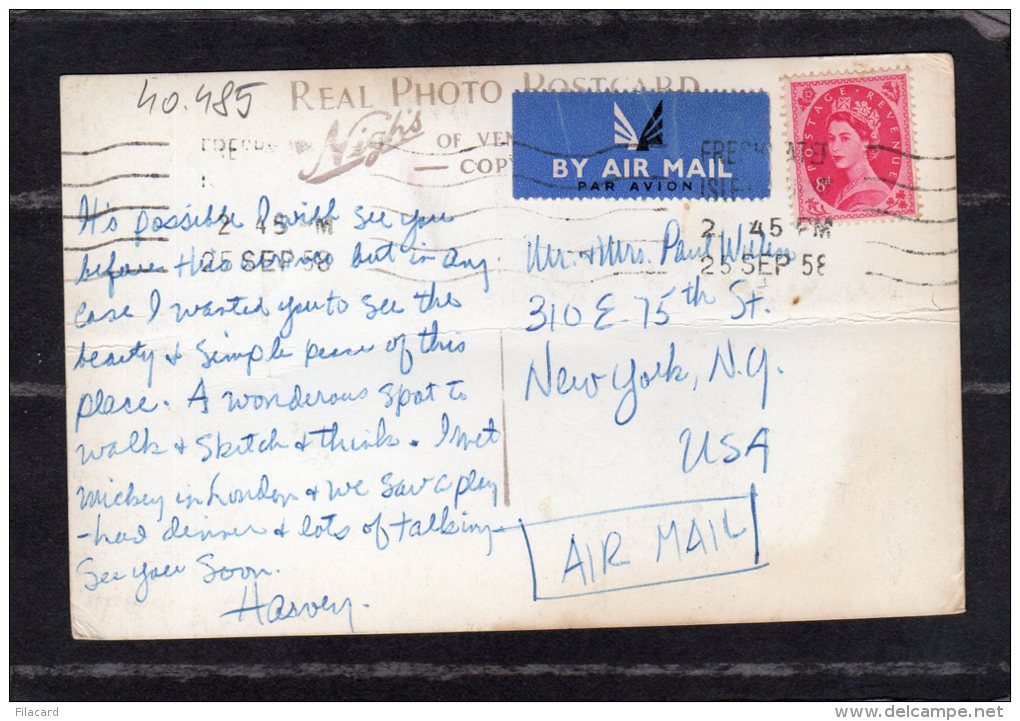 40.485
REAL PHOTO POSTCARD
Nigh's
OF VEN
COPY
BY AIR MAIL
PAR AVION
POSTAGE REVENUE
8D
2 45 PM
25 SEP 58
2 45 M
25 SEP 58
It's possible I will see you
before this arrives but in any
case I wanted you to see the
beauty & simple peace of this
place. A wonderous spot to
walk & sketch & think. I met
Mickey in London & we saw a play
-had dinner & lots of talking-
See you soon.
Harvey.
Mr. & Mrs. Paul
310 E 75th St.
New York, N.Y.
USA
AIR MAIL
Filacard
delcampe.net